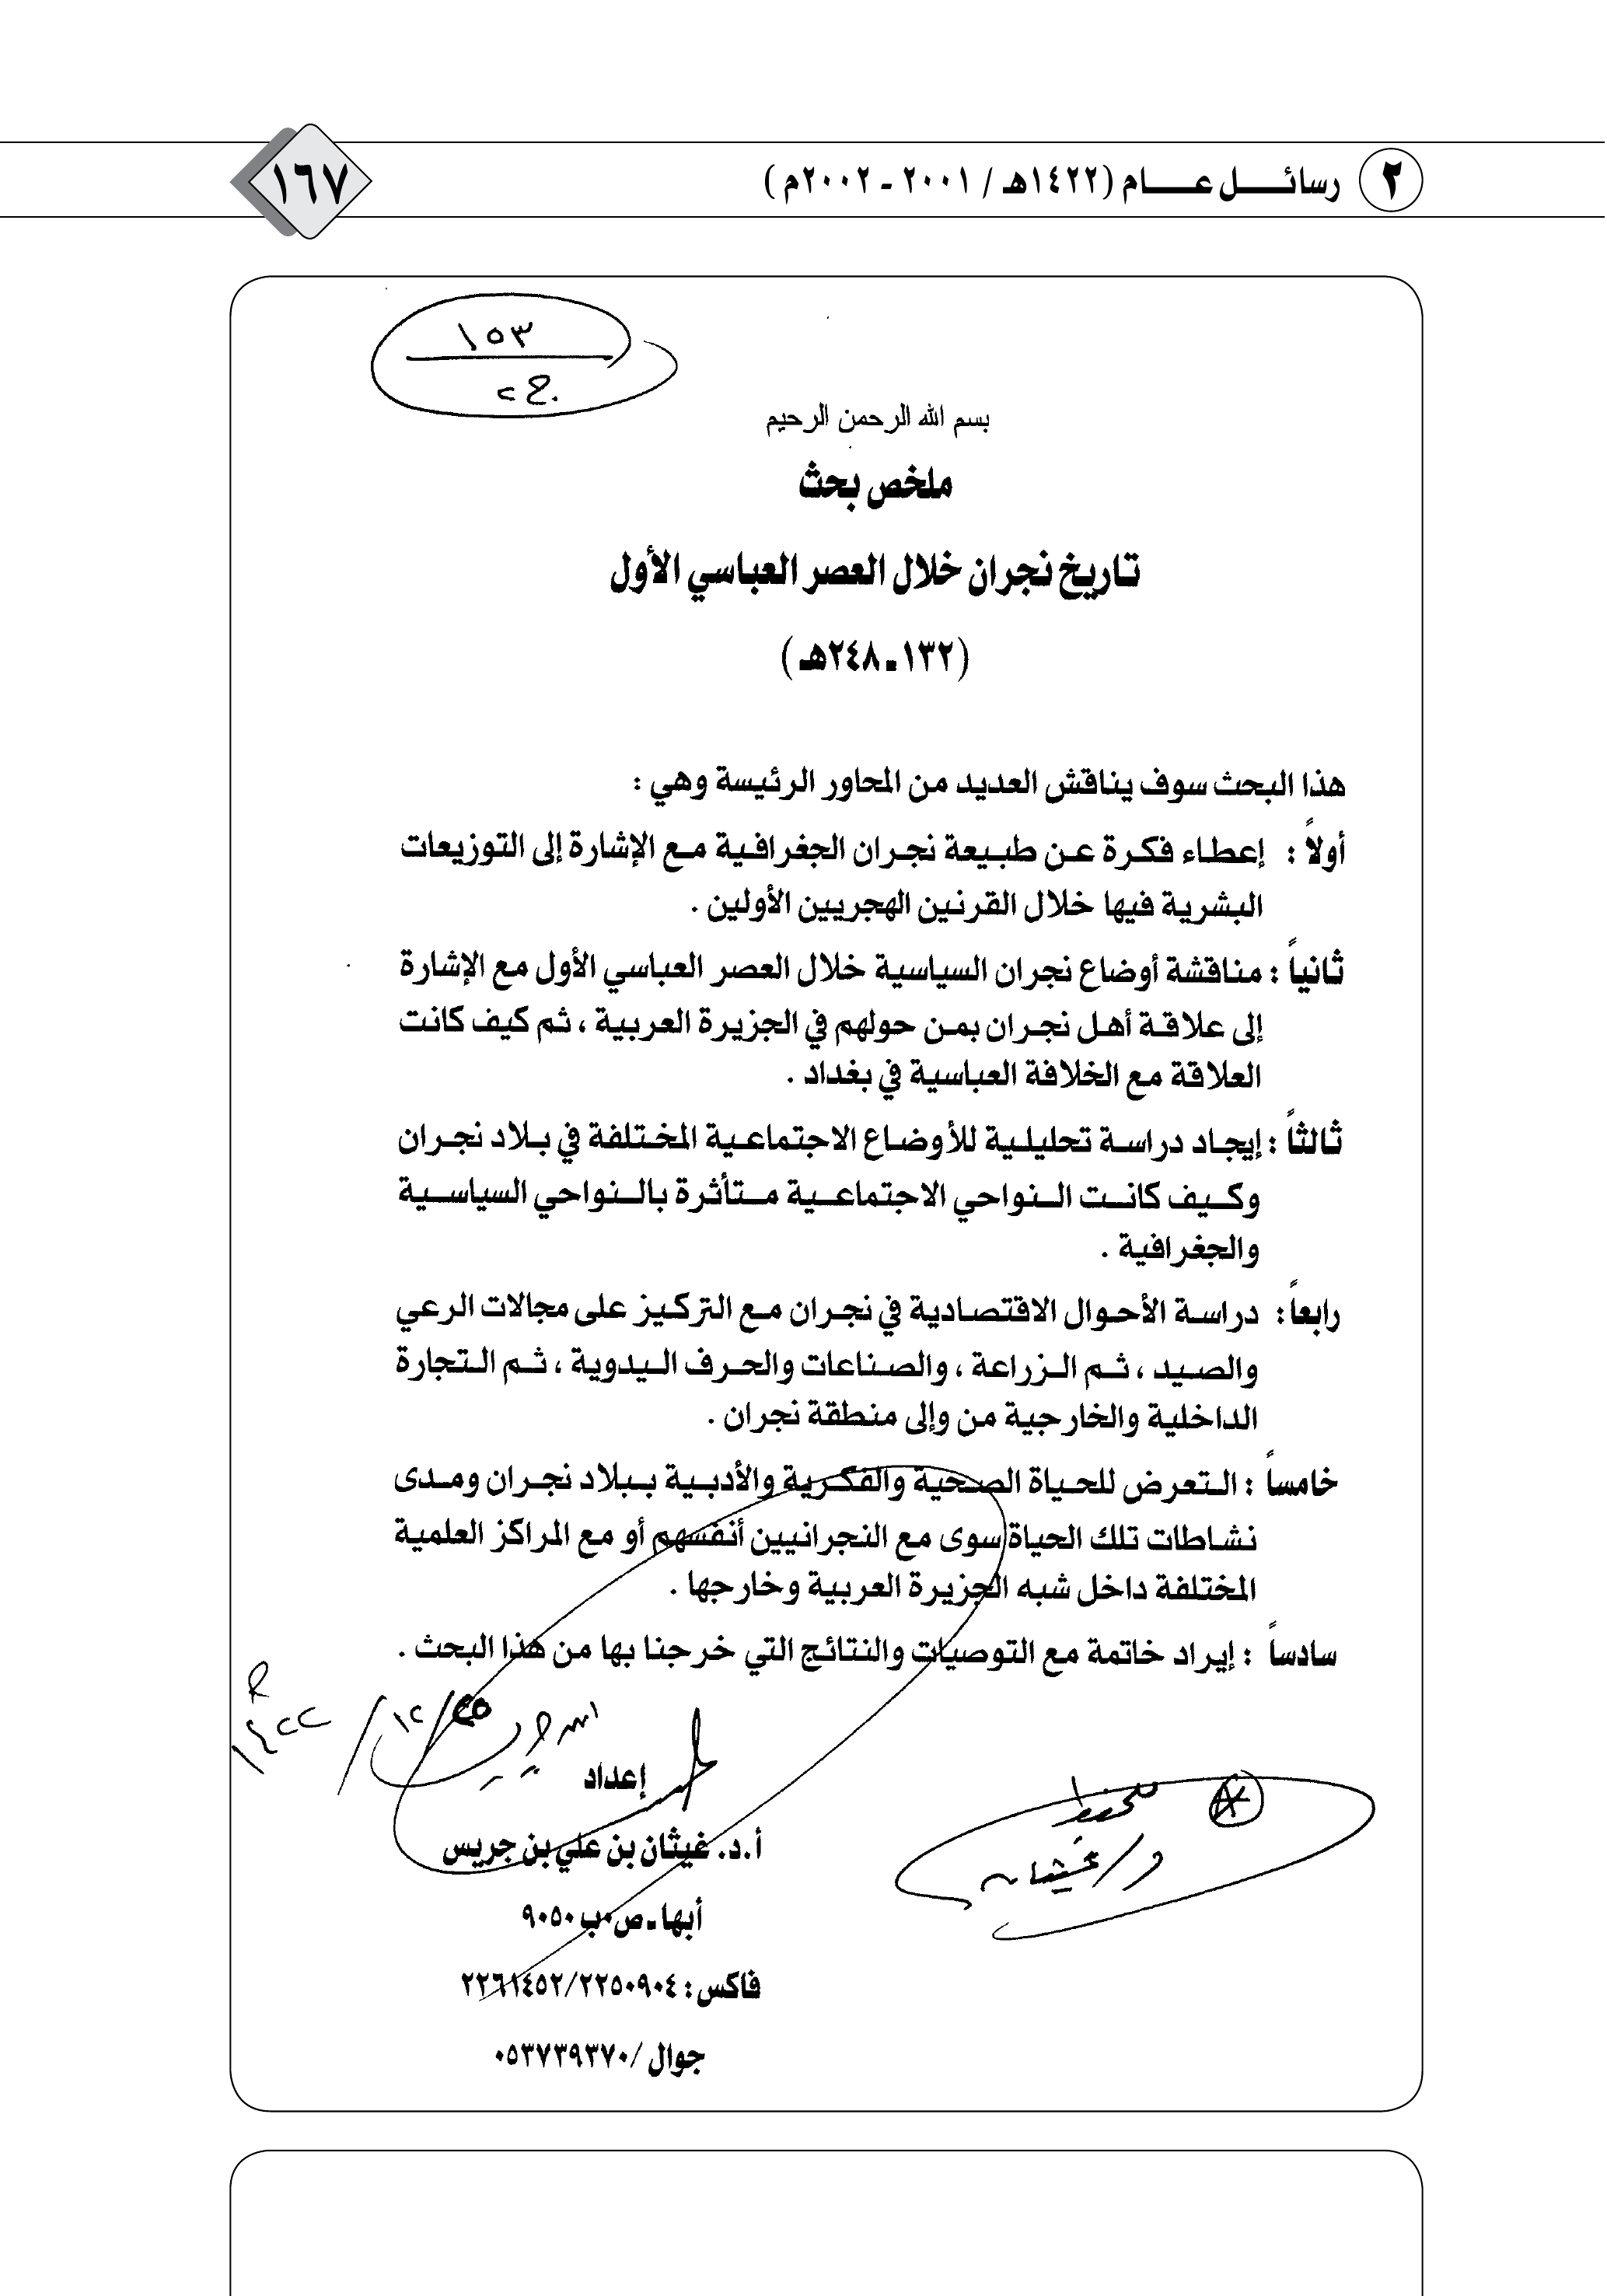 ٢ رسائل عام (١٤٢٢هـ / ٢٠٠١ - ٢٠٠٢م )
١٦٧
١٥٣
ج٢
بسم الله الرحمن الرحيم
ملخص بحث
تاريخ نجران خلال العصر العباسي الأول
(١٣٢ـ٢٤٨هـ)
هذا البحث سوف يناقش العديد من المحاور الرئيسة وهي :
أولاً : إعطاء فكرة عن طبيعة نجران الجغرافية مع الإشارة إلى التوزيعات
البشرية فيها خلال القرنين الهجريين الأولين .
ثانياً : مناقشة أوضاع نجران السياسية خلال العصر العباسي الأول مع الإشارة
إلى علاقة أهل نجران بمن حولهم في الجزيرة العربية ، ثم كيف كانت
العلاقة مع الخلافة العباسية في بغداد .
ثالثاً : إيجاد دراسة تحليلية للأوضاع الاجتماعية المختلفة في بلاد نجران
وكيف كانت النواحي الاجتماعية متأثرة بالنواحي السياسية
والجغرافية .
رابعاً : دراسة الأحوال الاقتصادية في نجران مع التركيز على مجالات الرعي
والصيد ، ثم الزراعة ، والصناعات والحرف اليدوية ، ثم التجارة
الداخلية والخارجية من وإلى منطقة نجران .
خامساً : التعرض للحياة الصحية والفكرية والأدبية ببلاد نجران ومدى
نشاطات تلك الحياة سوى مع النجرانيين أنفسهم أو مع المراكز العلمية
المختلفة داخل شبه الجزيرة العربية وخارجها .
سادساً : إيراد خاتمة مع التوصيات والنتائج التي خرجنا بها من هذا البحث .
١٤٢٢هـ
إعداد
للحفظ
أ.د. غيثان بن علي بن جريس
د/غيثان
أبها ـ ص.ب ٩٠٥٠
فاكس : ٢٢٦١٤٥٢/٢٢٥٠٩٠٤
جوال /٠٥٣٧٣٩٣٧٠